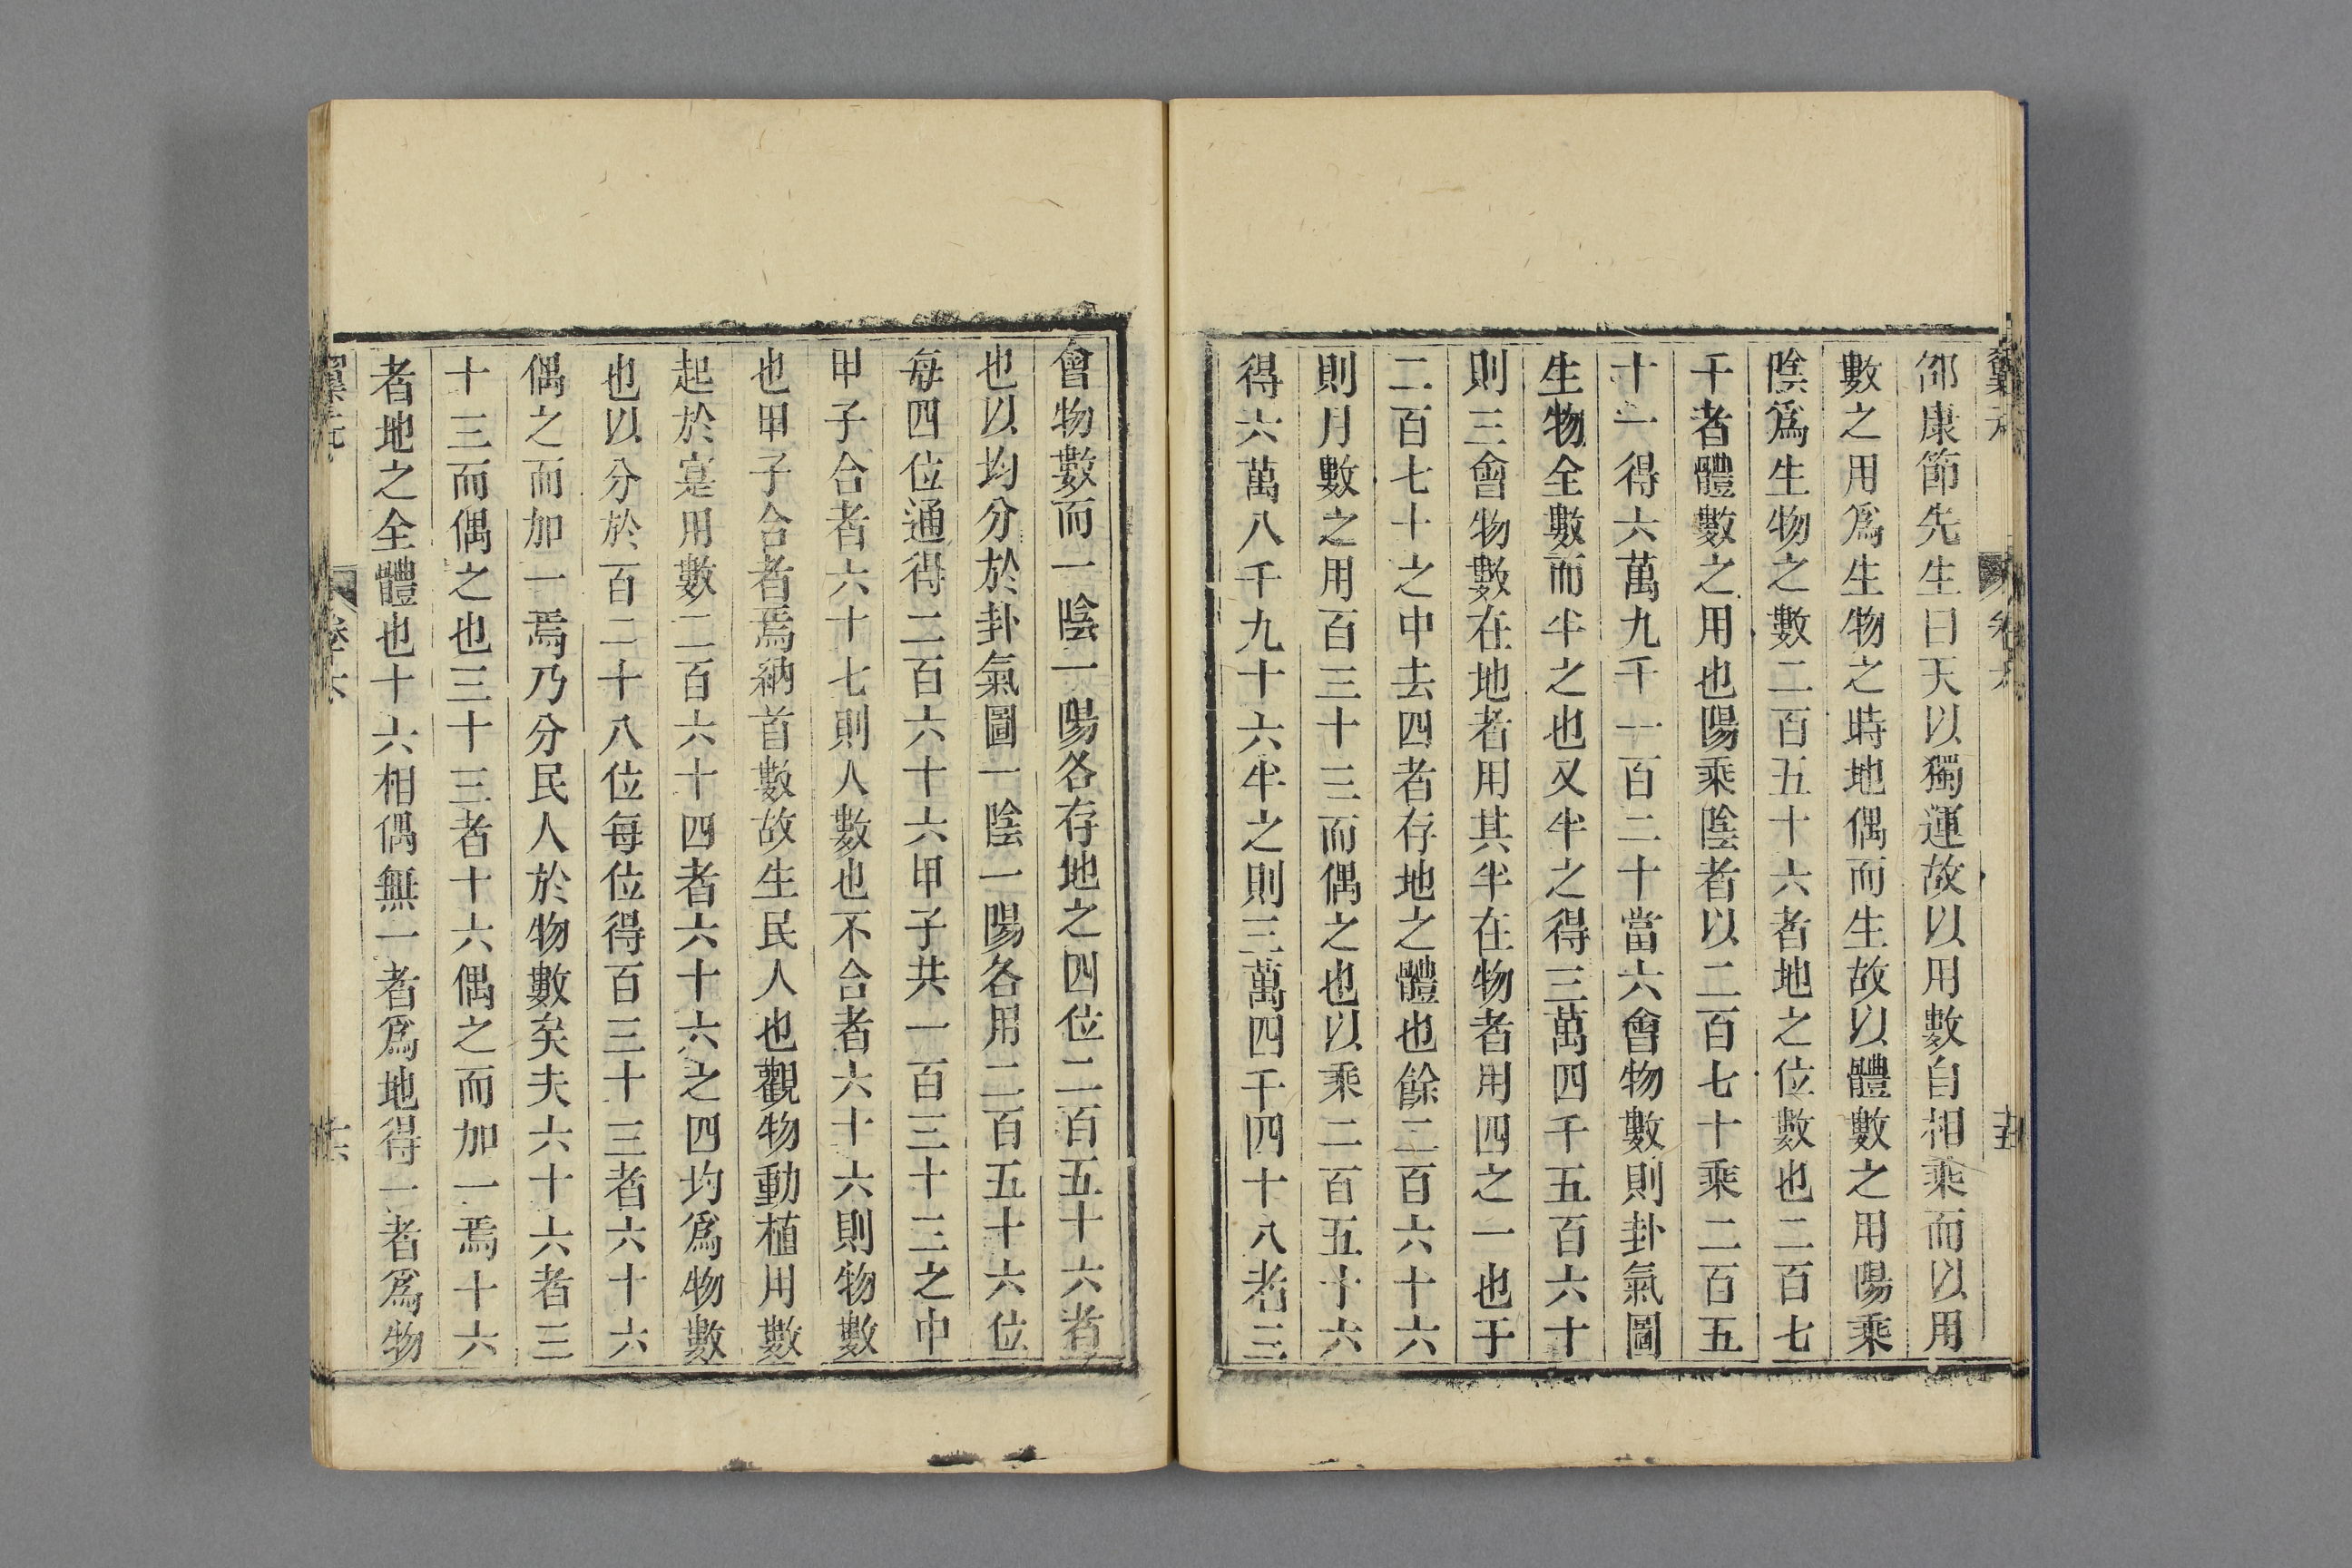 邵康節先生曰天以獨運故以用數自相乘而以用
數之用爲生物之時地偶而生故以體數之用陽乘
陰爲生物之數二百五十六者地之位數也二百七
十者體數之用也陽乘陰者以二百七十乘二百五
十六得六萬九千一百二十當六會物數則卦氣圖
生物全數而半之也又半之得三萬四千五百六十
則三會物數在地者用其半在物者用四之一也于
二百七十之中去四者存地之體也餘二百六十六
則月數之用百三十三而偶之也以乘二百五十六
得六萬八千九十六半之則三萬四千四十八者三
會物數而一陰一陽各存地之四位二百五十六者
也以均分於卦氣圖一陰一陽各用二百五十六位
每四位通得二百六十六甲子共一百三十三之中
甲子合者六十七則人數也不合者六十六則物數
也甲子合者焉納首數故生民人也觀物動植用數
起於寔用數二百六十四者六十六之四均爲物數
也以分於百二十八位每位得百三十三者六十六
偶之而加一焉乃分民人於物數矣夫六十六者三
十三而偶之也三十三者十六偶之而加一焉十六
者地之全體也十六相偶無一者爲地得一者爲物
卷六